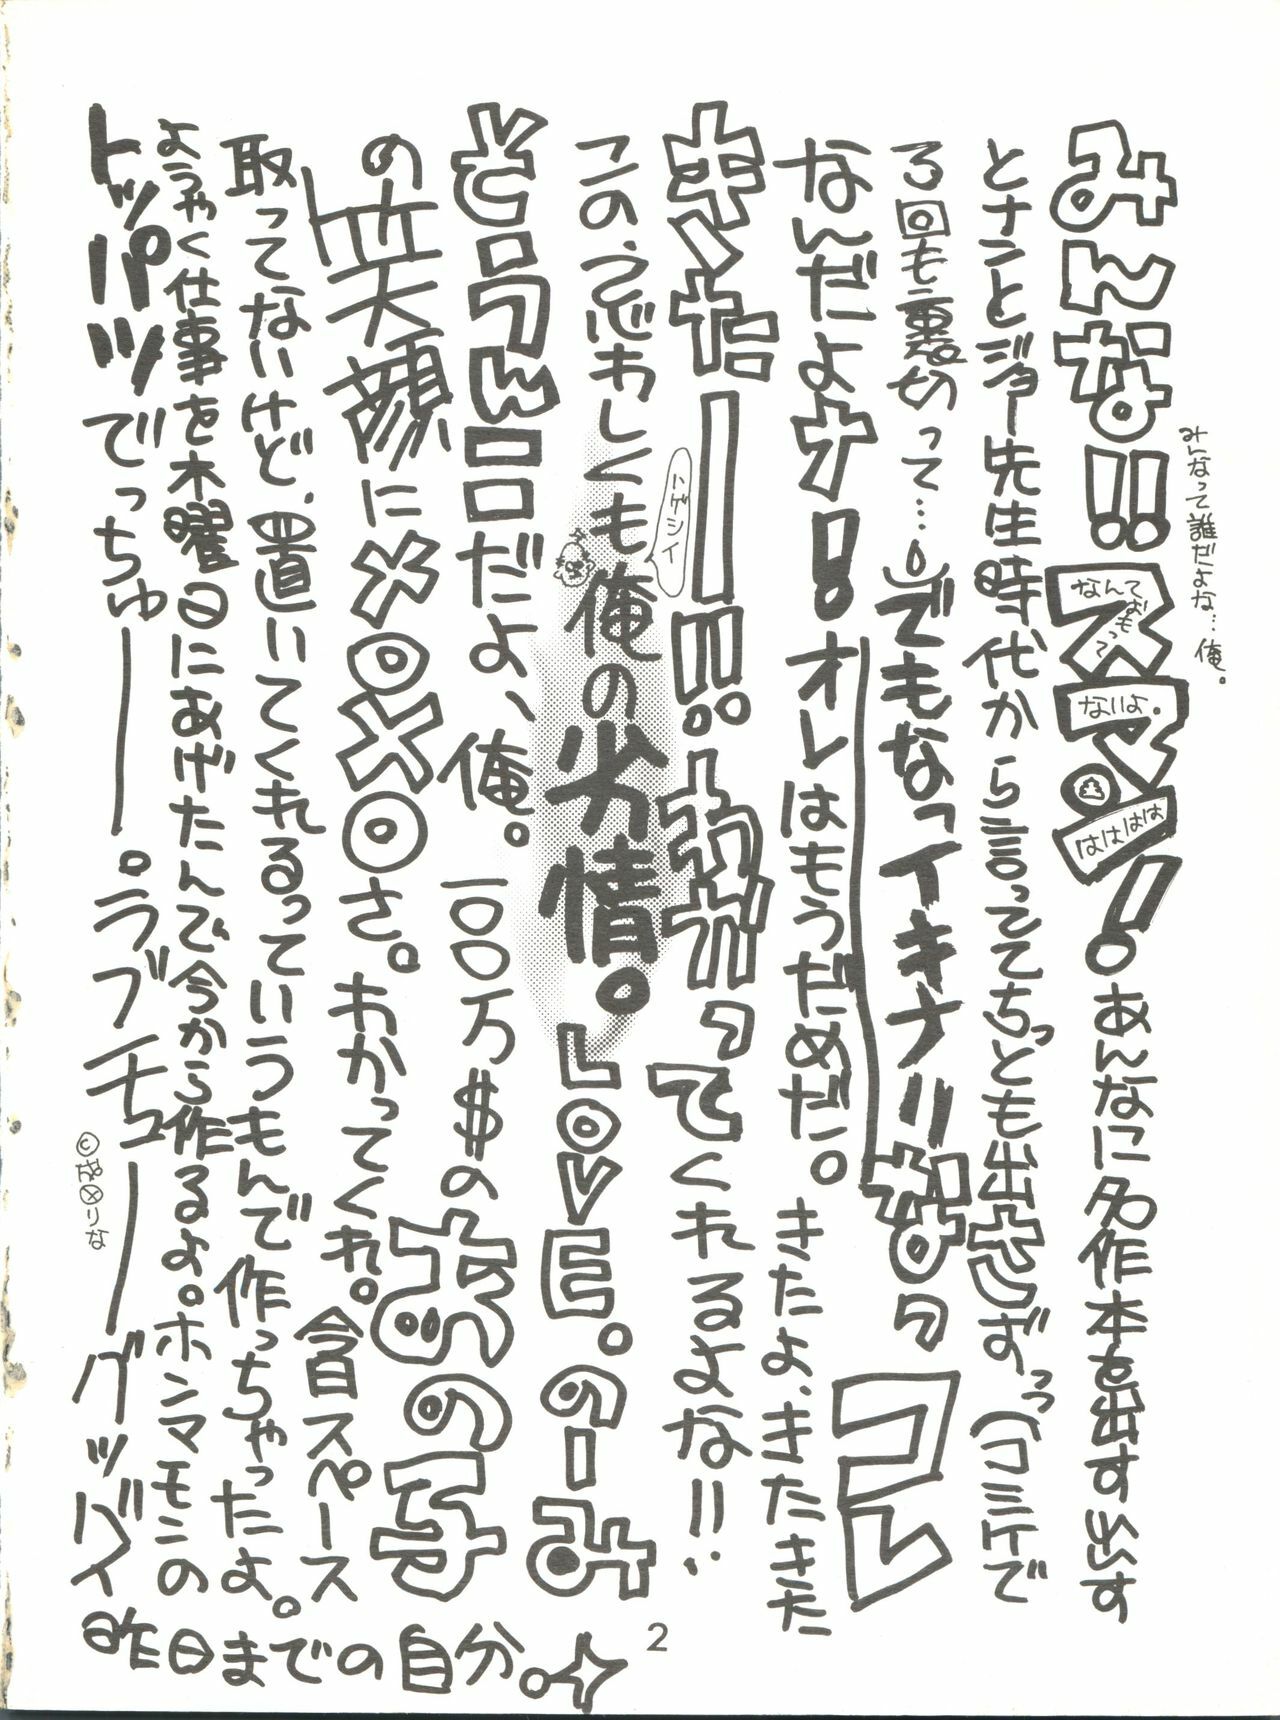 みんなって誰だよな…俺。
みんな!!スマン!あんなに名作本を出す出す
なんておもってないよ。
はははは
とナントジョー先生時代から言っててちっとも出さずっっ(コミケで
3回も裏切って…。)でもなっイキナリなっコレ
なんだよナ!オレはもうだめだ。きたよ、きたきた
きたーー!!わかってくれるよな!!
ハゲシイ
この、うつくしくも俺の劣情。LOVE。の一み
どうんロロだよ、俺。100万$のあの子
の笑顔に×○×○さ。わかってくれ。今日スペース
取ってないけど、置いてくれるっていうもんで作っちゃったよ。
ようやく仕事を木曜日にあげたんで今から作るよ。ホンマモンの
トッパツでっちゅー。ラブチューグッバイ
昨日までの自分。
りな
2